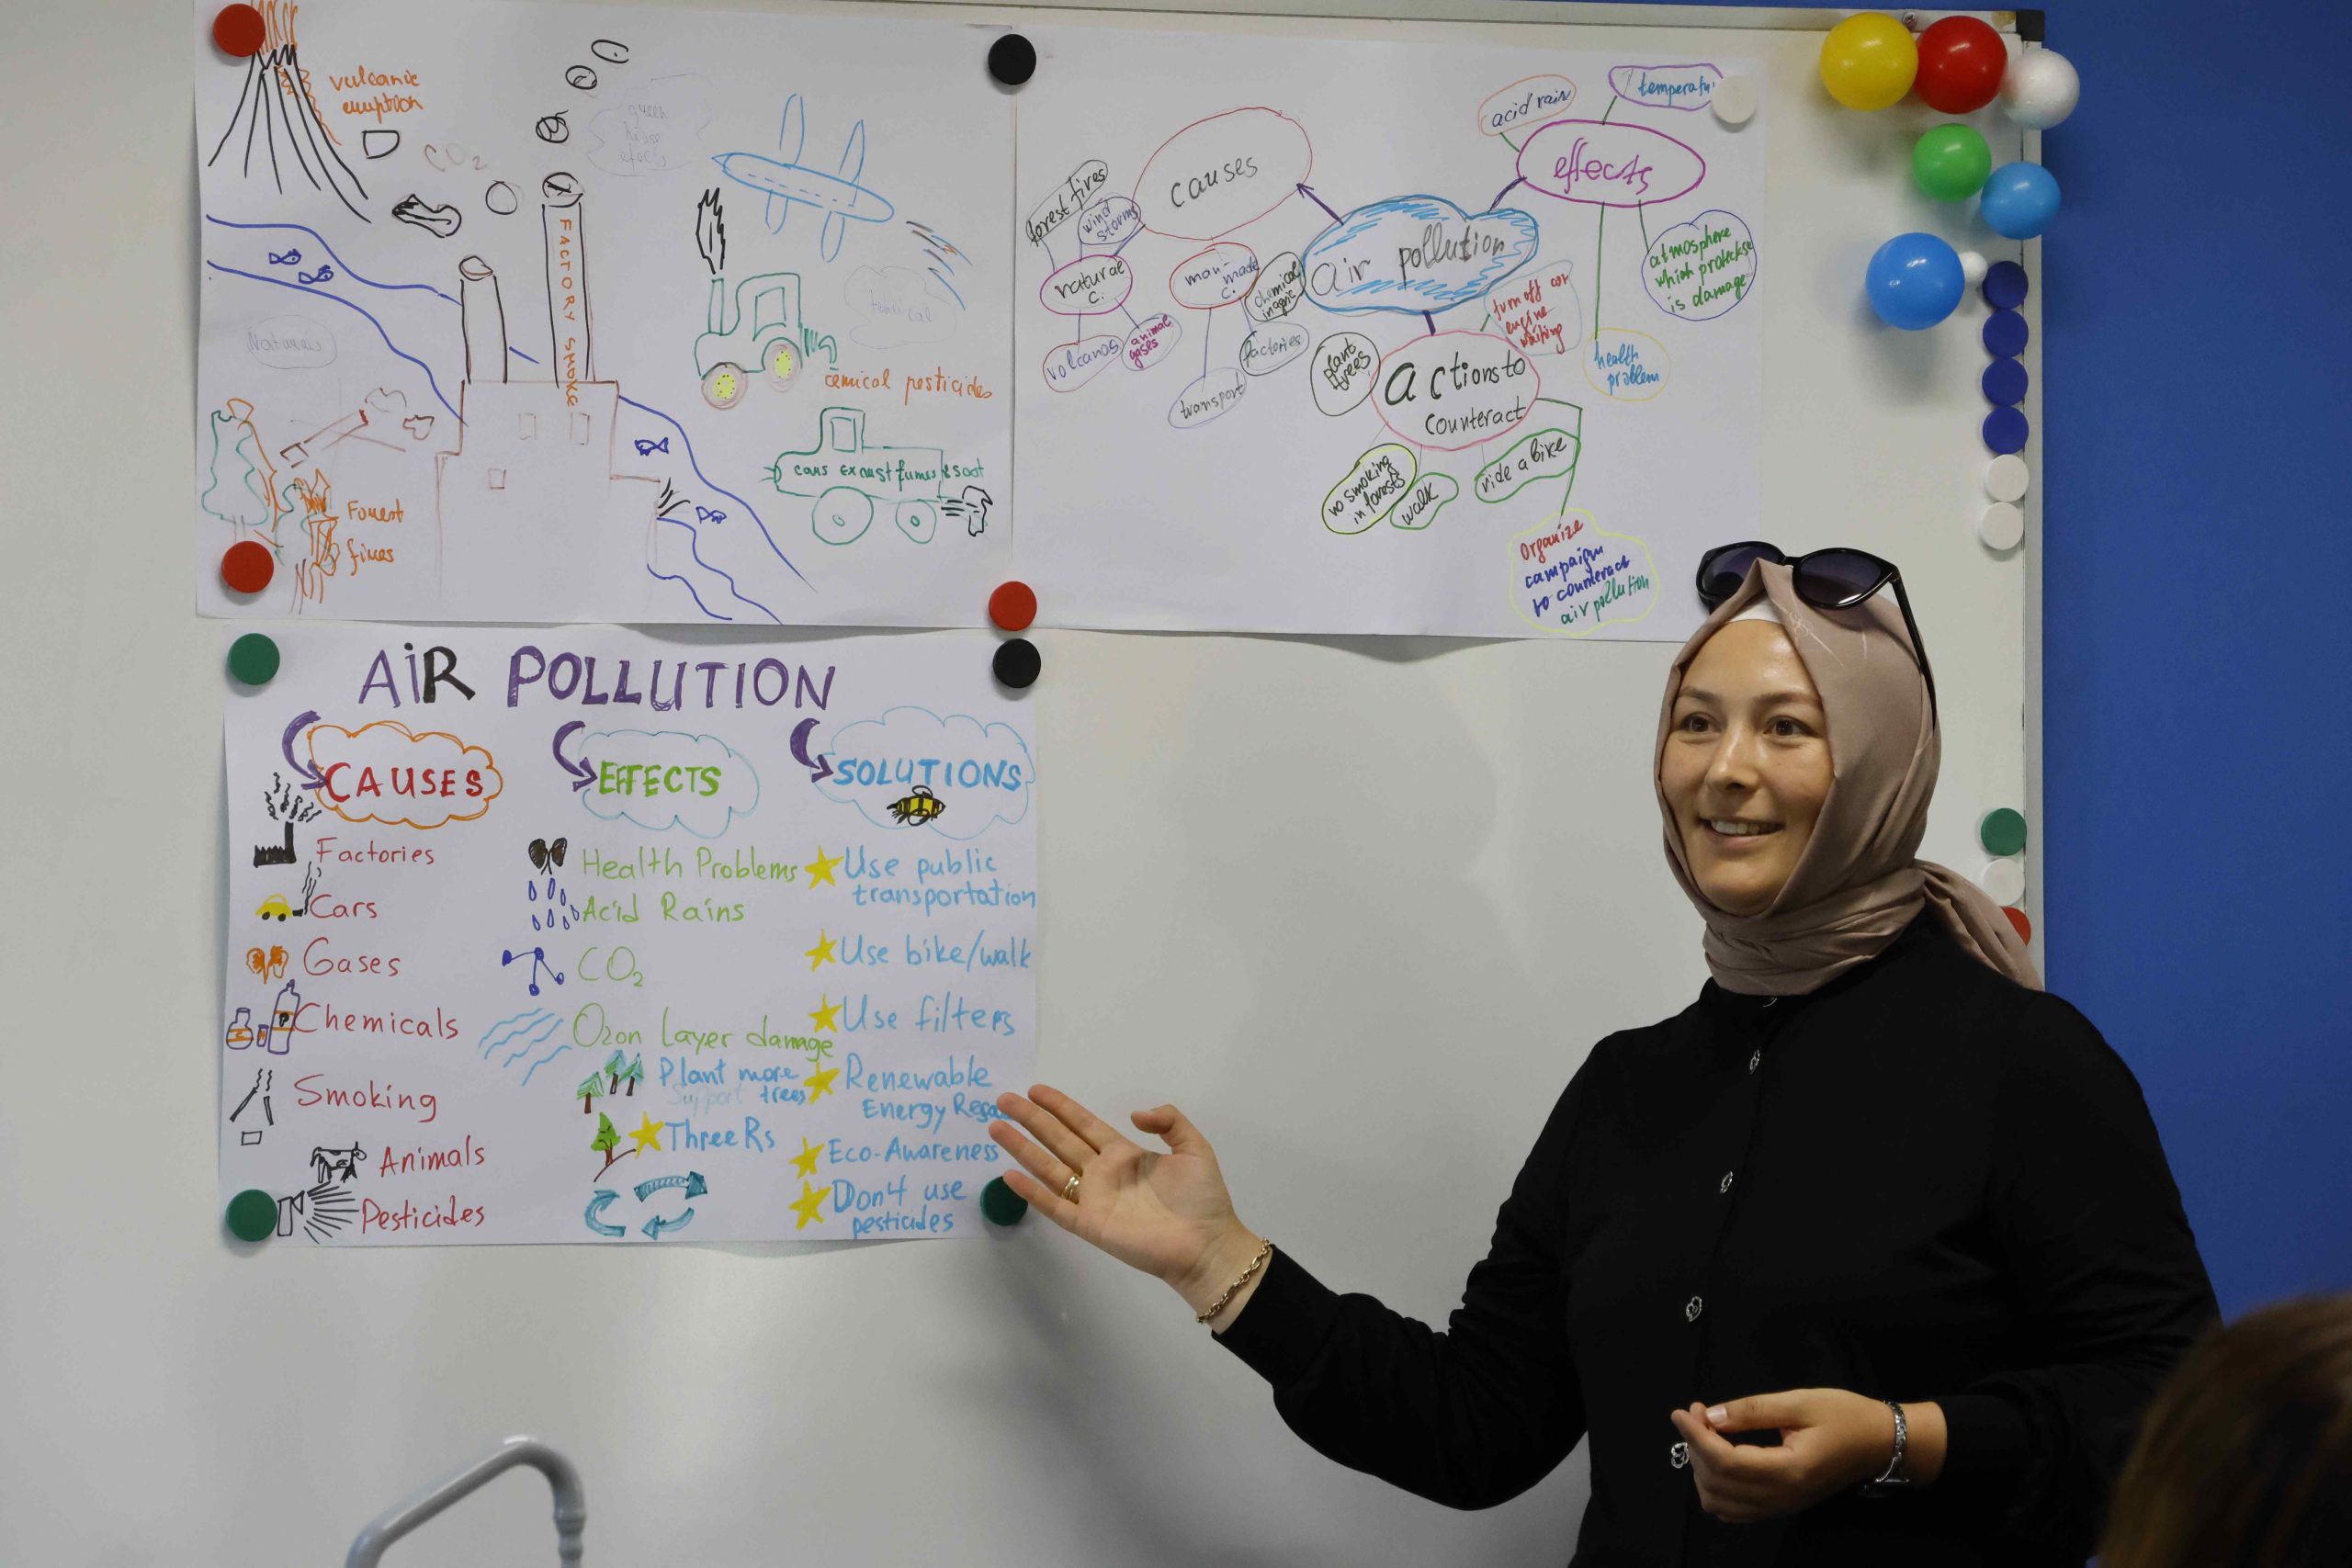 vulcanic
eruption
CO2
green
house
efects
FACTORY SMOKE
Naturals
cemical pesticides
cars exaust fumes & soot
Forest
fires
causes
forest fires
wind
storms
natural
c.
volcanos
animal
gases
man-
made
c.
chemical
factories
transport
air pollution
effects
acid rain
temperatu
atmosphere
which protects
is damage
health
problem
actions to
counteract
turn off car
engine
waiting
plant
trees
no smoking
in forests
walk
ride a bike
Organize
campaign
to counteract
air pollution
AiR POLLUTION
CAUSES
Factories
Cars
Gases
Chemicals
Smoking
Animals
Pesticides
EFFECTS
Health Problems
Acid Rains
CO2
Ozon Layer damage
SOLUTIONS
Use public
transportation
Use bike/walk
Use filters
Renewable
Energy
Eco-Awareness
Don4 use
pesticides
Plant more
Support trees
Three Rs